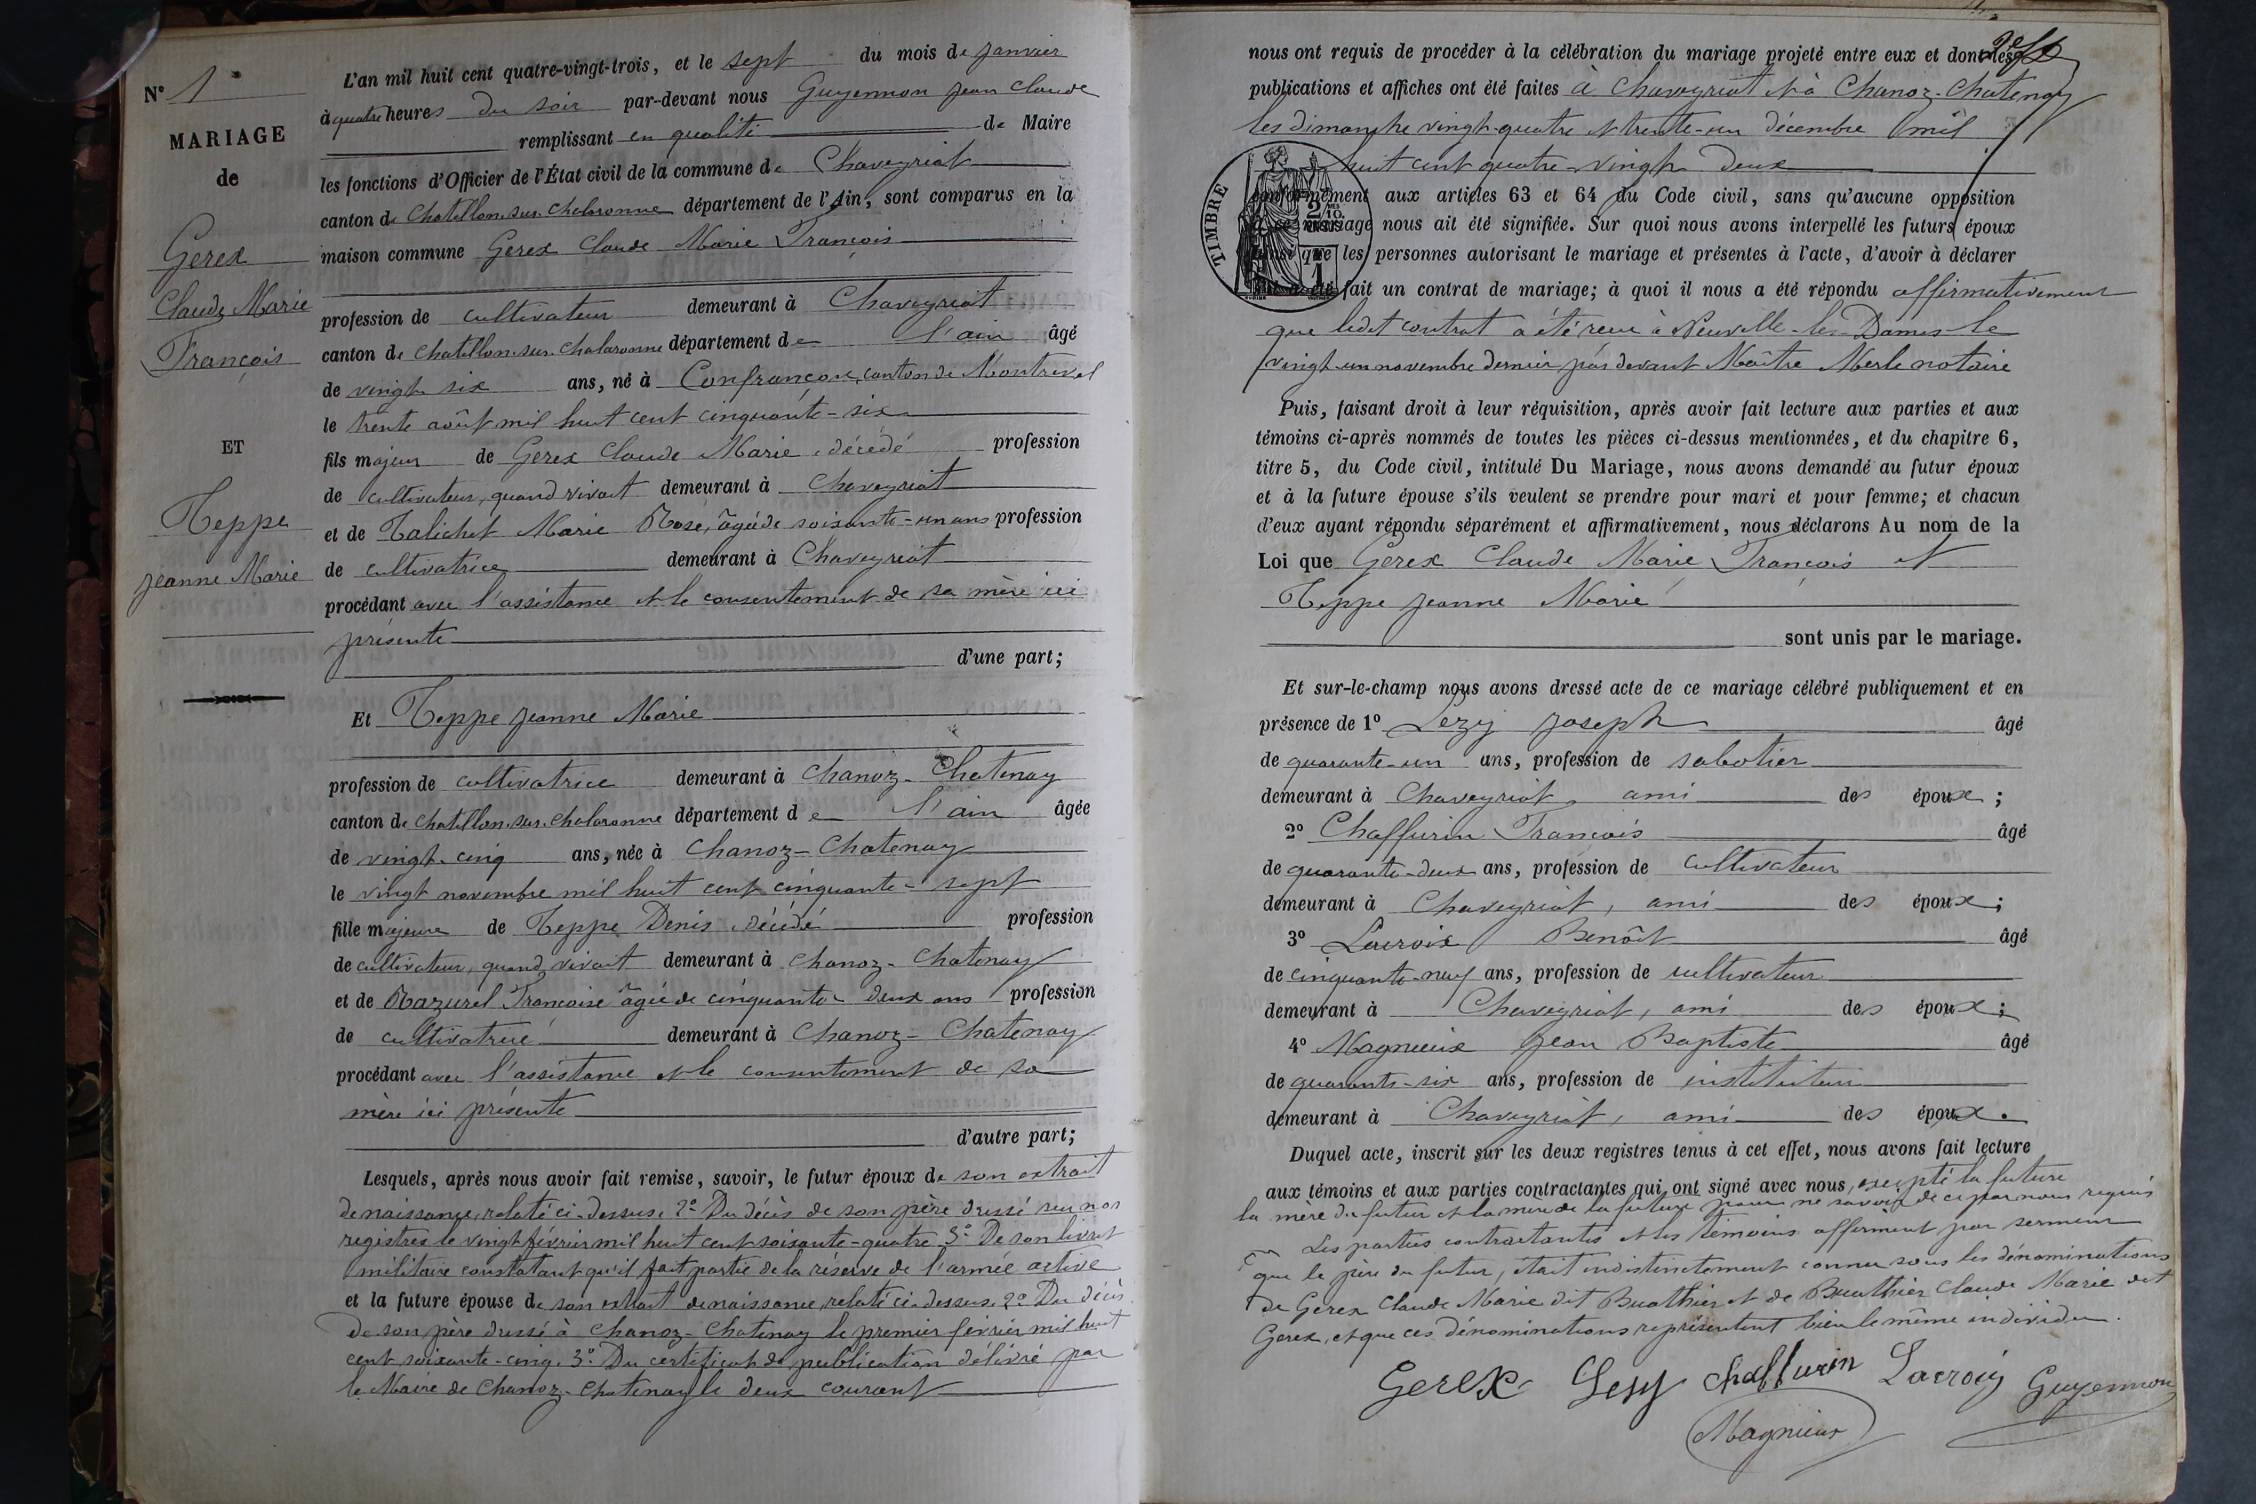 N° 1
MARIAGE
de
Gerex
Claude Marie
François
ET
Teppe
Jeanne Marie
L'an mil huit cent quatre-vingt-trois, et le sept du mois de janvier
à quatre heures du soir par-devant nous Guyennon Jean Claude
remplissant en qualité de Maire
les fonctions d'Officier de l'État civil de la commune de Chaveyriat
canton de Chatillon-sur-Chalaronne département de l'Ain, sont comparus en la
maison commune Gerex Claude Marie François
profession de cultivateur demeurant à Chaveyriat
canton de Chatillon-sur-Chalaronne département de l'ain âgé
de vingt six ans, né à Confrançon, canton de Montrevel
le trente août mil huit cent cinquante-six
fils majeur de Gerex Claude Marie décédé profession
de cultivateur, quand vivait demeurant à Chaveyriat
et de Talichet Marie Rose, âgée de soixante-un ans profession
de cultivatrice demeurant à Chaveyriat
procédant avec l'assistance et le consentement de sa mère ici
présente
d'une part;
Et Teppe Jeanne Marie
profession de cultivatrice demeurant à Chanoz-Chatenay
canton de Chatillon-sur-Chalaronne département de l'ain âgée
de vingt-cinq ans, née à Chanoz-Chatenay
le vingt novembre mil huit cent cinquante-sept
fille majeure de Teppe Denis, décédé profession
de cultivateur, quand vivait demeurant à Chanoz-Chatenay
et de Mazurel Françoise âgée de cinquante-deux ans profession
de cultivatrice demeurant à Chanoz-Chatenay
procédant avec l'assistance et le consentement de sa
mère ici présente
d'autre part;
Lesquels, après nous avoir fait remise, savoir, le futur époux de son extrait
de naissance, relaté ci-dessus, 2° Du décès de son père dressé sur nos
registres le vingt février mil huit cent soixante-quatre 3° De son livret
militaire constatant qu'il fait partie de la réserve de l'armée active
et la future épouse de son extrait de naissance, relaté ci-dessus, 2° Du décès
de son père dressé à Chanoz-Chatenay le premier février mil huit
cent soixante-cinq. 3° Du certificat de publication délivré par
le Maire de Chanoz-Chatenay le deux courant
nous ont requis de procéder à la célébration du mariage projeté entre eux et dont les
publications et affiches ont été faites à Chaveyriat et à Chanoz-Chatenay
les dimanche vingt-quatre et trente-un décembre mil
huit cent quatre-vingt deux
TIMBRE
conformément aux articles 63 et 64 du Code civil, sans qu'aucune opposition
à ce mariage nous ait été signifiée. Sur quoi nous avons interpellé les futurs époux
ainsi que les personnes autorisant le mariage et présentes à l'acte, d'avoir à déclarer
s'il a été fait un contrat de mariage; à quoi il nous a été répondu affirmativement
que ledit contrat a été reçu à Neuville-les-Dames le
vingt-un novembre dernier par devant Maître Merle notaire
Puis, faisant droit à leur réquisition, après avoir fait lecture aux parties et aux
témoins ci-après nommés de toutes les pièces ci-dessus mentionnées, et du chapitre 6,
titre 5, du Code civil, intitulé Du Mariage, nous avons demandé au futur époux
et à la future épouse s'ils veulent se prendre pour mari et pour femme; et chacun
d'eux ayant répondu séparément et affirmativement, nous déclarons Au nom de la
Loi que Gerex Claude Marie François et
Teppe Jeanne Marie
sont unis par le mariage.
Et sur-le-champ nous avons dressé acte de ce mariage célébré publiquement et en
présence de 1° Lezy Joseph âgé
de quarante-un ans, profession de sabotier
demeurant à Chaveyriat, ami des époux;
2° Chaffurin François âgé
de quarante-deux ans, profession de cultivateur
demeurant à Chaveyriat, ami des époux;
3° Lacroix Benôit âgé
de cinquante-neuf ans, profession de cultivateur
demeurant à Chaveyriat, ami des époux;
4° Magnieux Jean Baptiste âgé
de quarante-six ans, profession de instituteur
demeurant à Chaveyriat, ami des époux.
Duquel acte, inscrit sur les deux registres tenus à cet effet, nous avons fait lecture
aux témoins et aux parties contractantes qui ont signé avec nous, excepté la future
la mère du futur et la mère de la future pour ne savoir de ce par nous requis
Les parties contractantes et les témoins afferment par serment
que le père du futur, était indistinctement connu sous les dénominations
de Gerex Claude Marie dit Buathier et de Buathier Claude Marie dit
Gerex, et que ces dénominations représentent bien le même individu.
Gerex Lesy Chaffurin Lacroix Guyennon
Magnieux